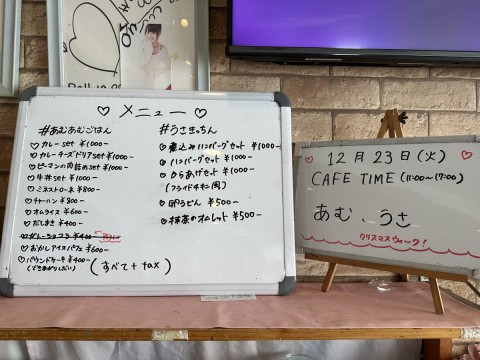 ♡ メニュー ♡
#あむあむごはん
♡ カレーset ¥1000-
♡ カレーチーズドリアset ¥1000-
♡ ピーマンの肉詰めset ¥1000-
♡ 牛丼set ¥1000-
♡ ミネストローネ ¥800-
♡ チャーハン ¥800-
♡ オムライス ¥600-
♡ だしまき ¥400-
♡ ガトーショコラ ¥400-
♡ おかしアイスパフェ ¥600-
♡ パウンドケーキ ¥400-
(できあがりしだい)
(すべて + tax)
#うさきっちん
♡ 煮込みハンバーグセット ¥1000-
♡ ハンバーグセット ¥1000-
♡ からあげセット ¥1000-
♡ 卵うどん ¥500-
♡ 抹茶のオムレット ¥500-
♡ 12月23日(火) ♡
CAFE TIME (11:00~17:00)
あむ、うさ
クリスマスウィーク!